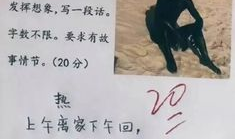 发挥想象，写一段话。
字数不限。要求有故
事情节。（20分）
20
热
上午离家下午回，